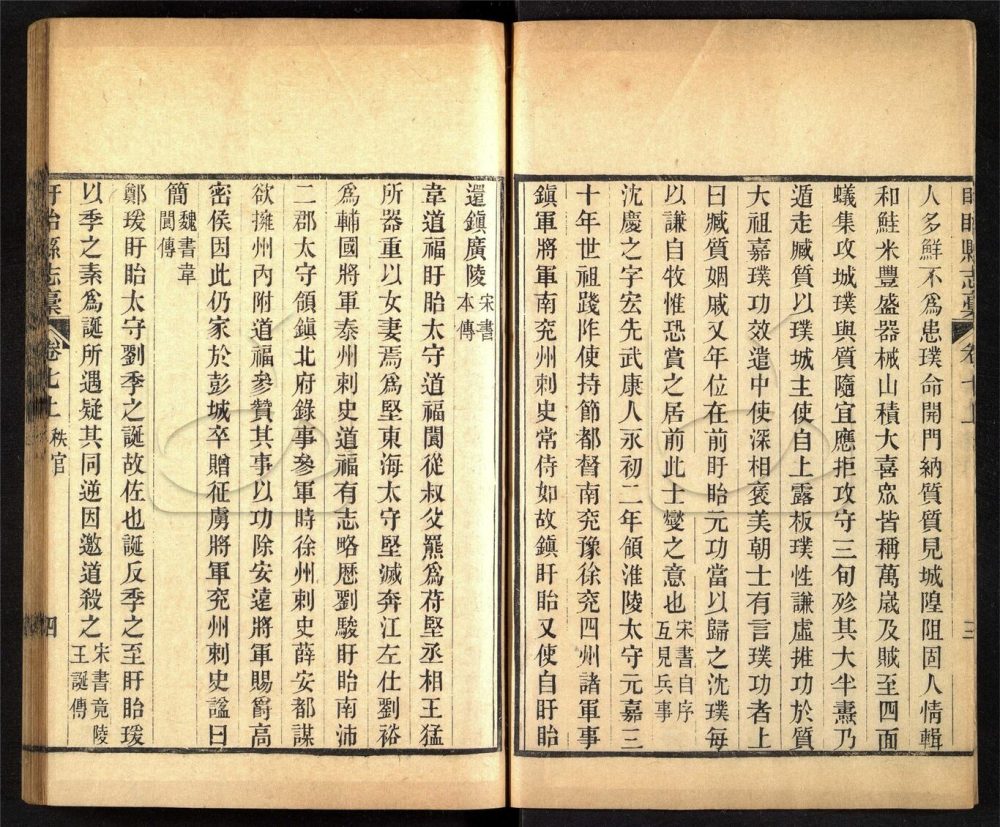 盱眙縣志稾 卷七上 三
人多鮮不爲患璞命開門納質質見城隍阻固人情輯
和鮭米豐盛器械山積大喜眾皆稱萬歲及賊至四面
蟻集攻城璞與質隨宜應拒攻守三旬殄其大半燾乃
遁走臧質以璞城主使自上露板璞性謙虛推功於質
大祖嘉璞功效遣中使深相褒美朝士有言璞功者上
曰臧質姻戚又年位在前盱眙元功當以歸之沈璞每
以謙自牧惟恐賞之居前此士燮之意也宋書自序互見兵事
沈慶之字宏先武康人永初二年領淮陵太守元嘉三
十年世祖踐阼使持節都督南兖豫徐兖四州諸軍事
鎮軍將軍南兖州刺史常侍如故鎮盱眙又使自盱眙
還鎮廣陵宋書本傳
韋道福盱眙太守道福閬從叔父羆爲苻堅丞相王猛
所器重以女妻焉爲堅東海太守堅滅奔江左仕劉裕
爲輔國將軍秦州刺史道福有志略歷劉駿盱眙南沛
二郡太守領鎮北府錄事參軍時徐州刺史薛安都謀
欲擁州內附道福參贊其事以功除安遠將軍賜爵高
密侯因此仍家於彭城卒贈征虜將軍兖州刺史諡曰
簡魏書韋閬傳
鄭瑗盱眙太守劉季之誕故佐也誕反季之至盱眙瑗
以季之素爲誕所遇疑其同逆因邀道殺之宋書竟陵王誕傳
盱眙縣志稾 卷七上 秩官 四